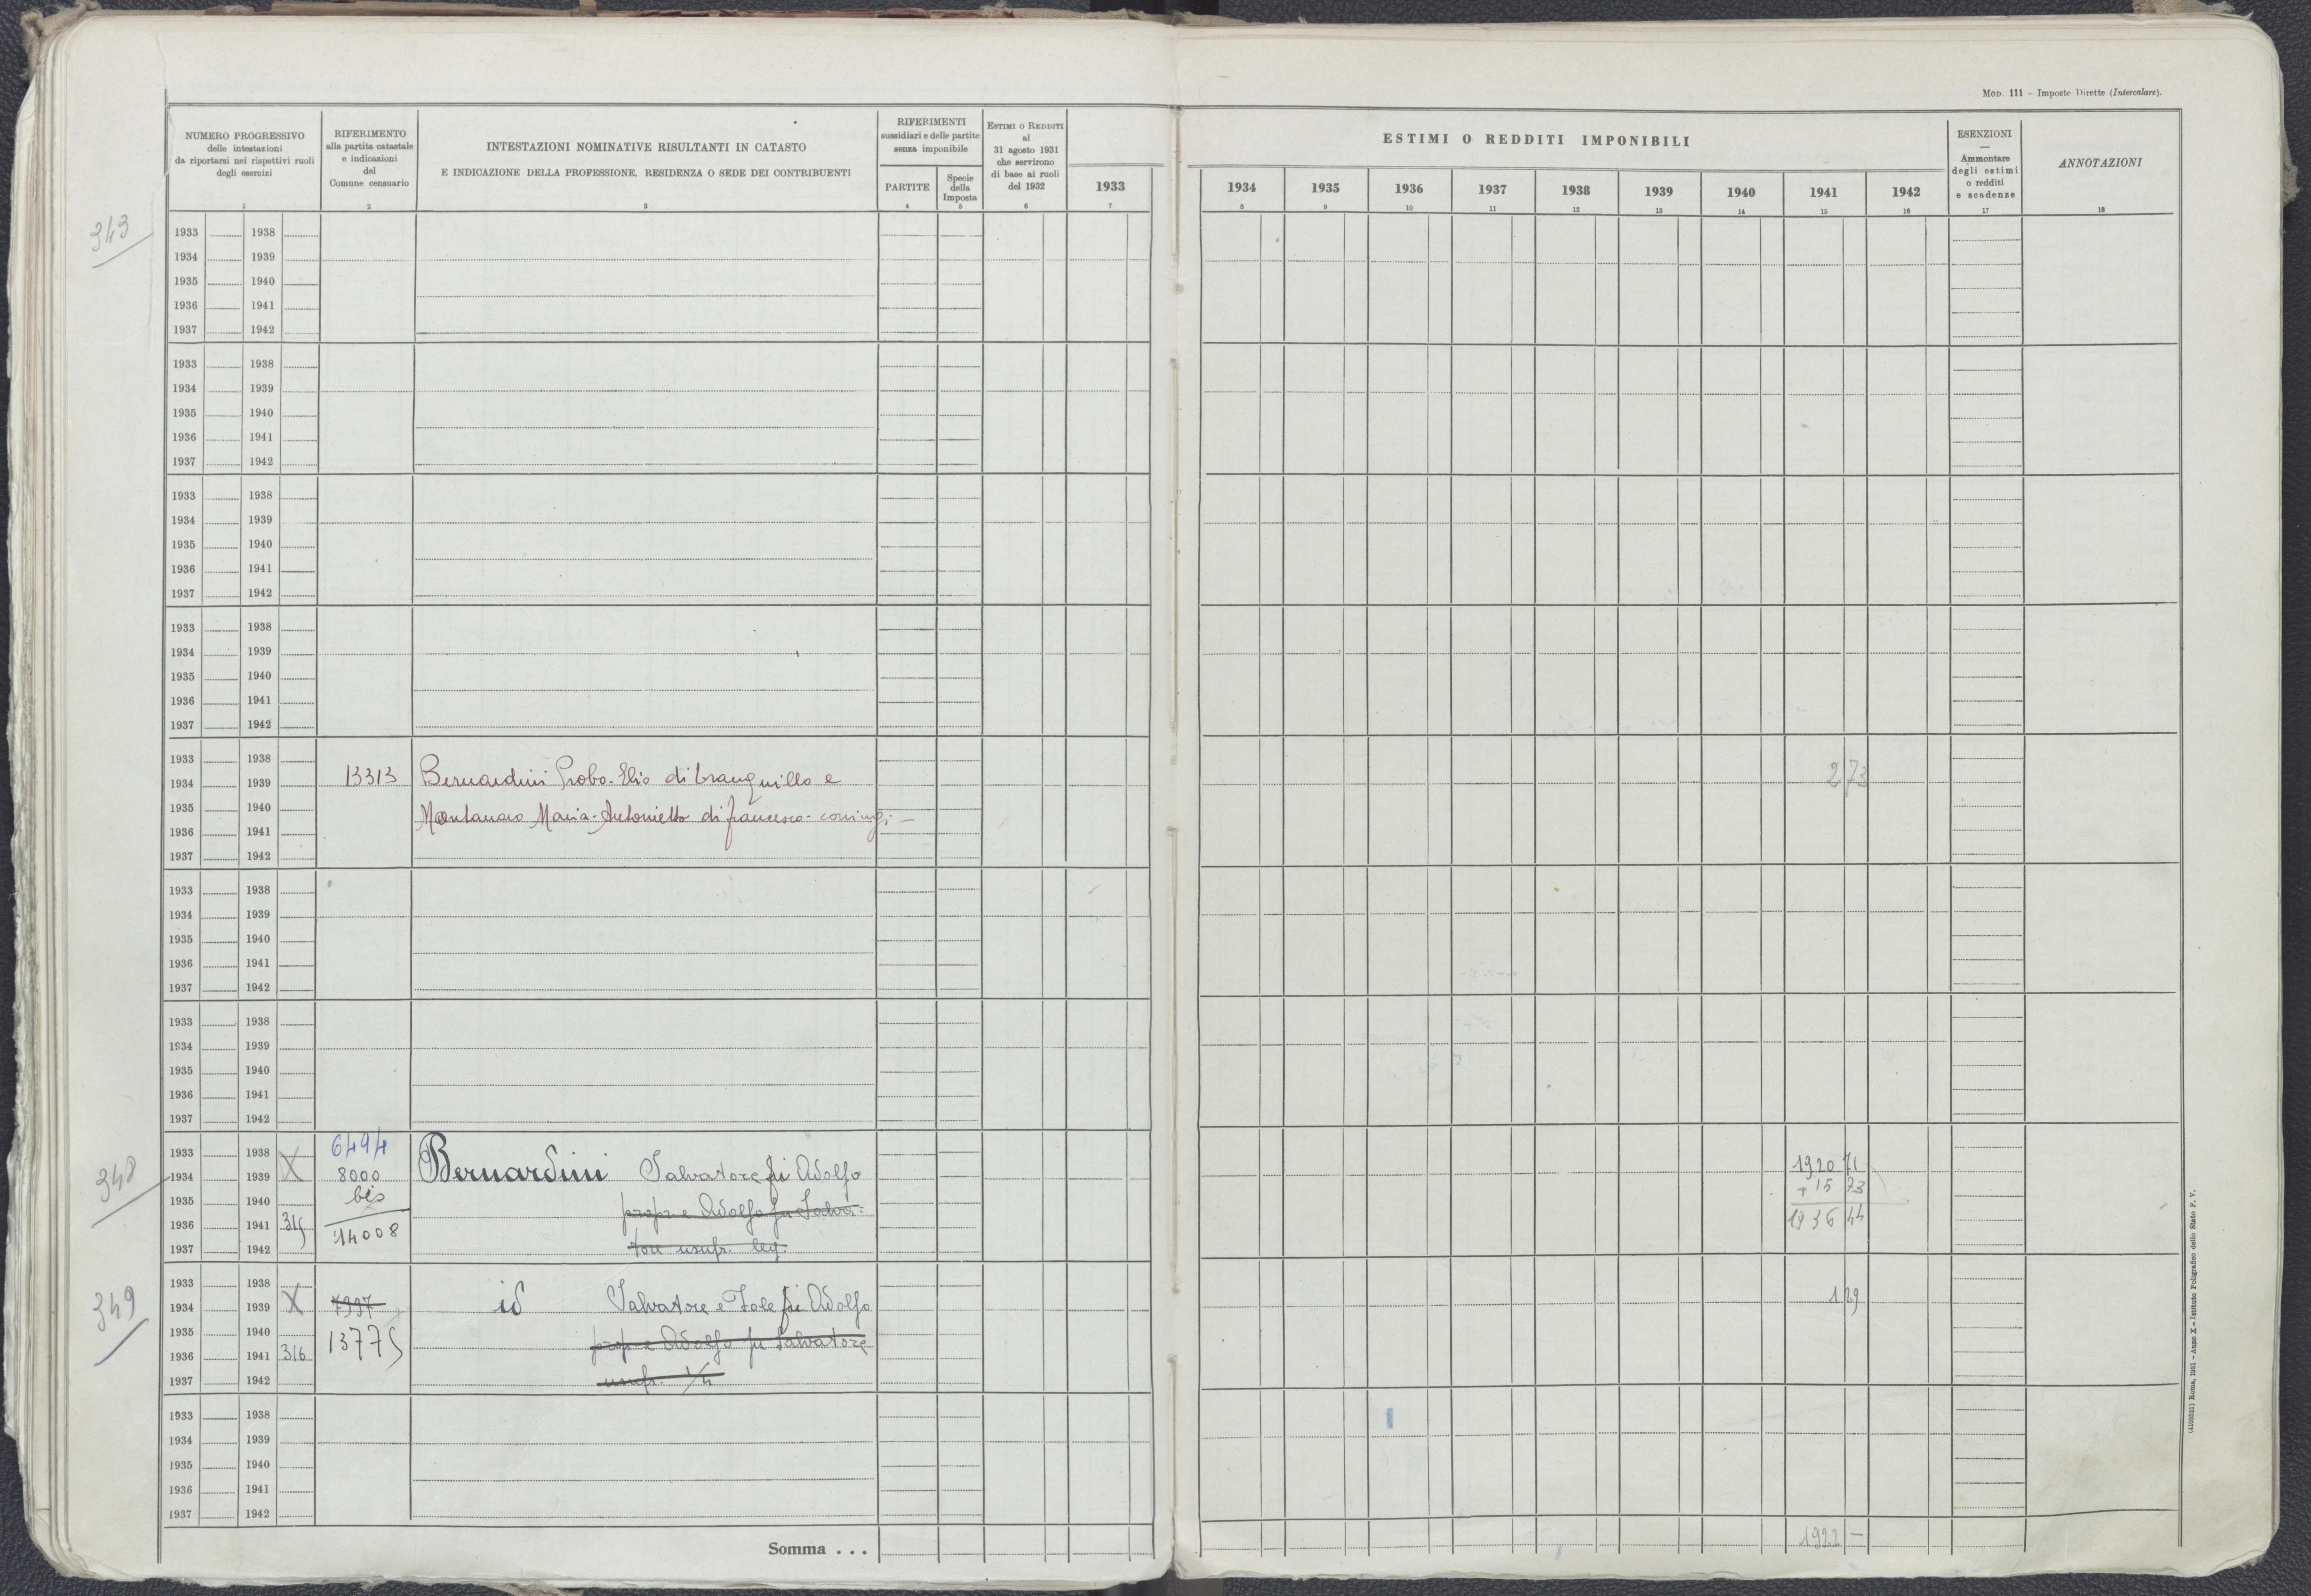 Mod. 111 - Imposte Dirette (Intercalare).
NUMERO PROGRESSIVO
delle intestazioni
da riportarsi nei rispettivi ruoli
degli esercizi
1
RIFERIMENTO
alla partita catastale
e indicazioni
del
Comune censuario
2
INTESTAZIONI NOMINATIVE RISULTANTI IN CATASTO
E INDICAZIONE DELLA PROFESSIONE, RESIDENZA O SEDE DEI CONTRIBUENTI
3
RIFERIMENTI
sussidiari e delle partite
senza imponibile
PARTITE
4
Specie
della
Imposta
5
ESTIMI O REDDITI
al
31 agosto 1931
che servirono
di base ai ruoli
del 1932
6
1933
7
ESTIMI O REDDITI IMPONIBILI
1934 1935 1936 1937 1938 1939 1940 1941 1942
8 9 10 11 12 13 14 15 16
ESENZIONI
—
Ammontare
degli estimi
o redditi
e scadenze
17
ANNOTAZIONI
18
343
1933 1938
1934 1939
1935 1940
1936 1941
1937 1942
1933 1938
1934 1939
1935 1940
1936 1941
1937 1942
1933 1938
1934 1939
1935 1940
1936 1941
1937 1942
1933 1938
1934 1939
1935 1940
1936 1941
1937 1942
1933 1938
1934 1939 13313 Bernardini Probo-Elio di Tranquillo e 2 73
1935 1940 Montanaro Maria-Antonietta di Francesco- coniugi-
1936 1941
1937 1942
1933 1938
1934 1939
1935 1940
1936 1941
1937 1942
1933 1938
1934 1939
1935 1940
1936 1941
1937 1942
1933 1938 X 6494
348 1934 1939 8000 Bernardini Salvatore fu Adolfo 1920 71
1935 1940 bis propr e Adolfo fu Salva: + 15 73
1936 1941 315 14008 1936 44
1937 1942 tore usufr. leg.
1933 1938
349 1934 1939 X 7997 id Salvatore e Iole fu Adolfo 1 29
1935 1940 13775 prop e Adolfo fu Salvatore
1936 1941 316
1937 1942 usufr. 1/4
1933 1938
1934 1939
1935 1940
1936 1941
1937 1942
Somma . . . 1922 -
Roma, 1931 - Anno X - Istituto Poligrafico dello Stato P. V.